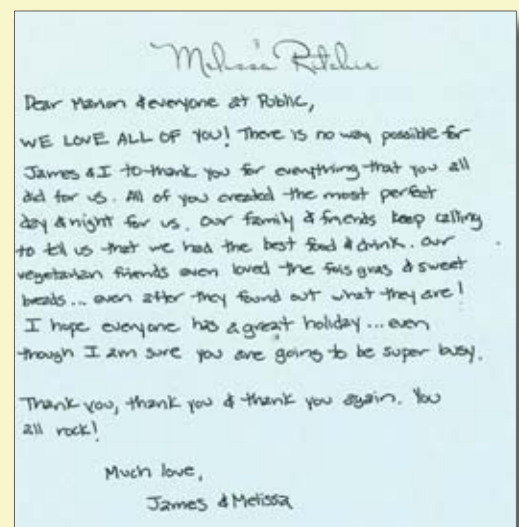 Melissa Ritchie
Dear Marion & everyone at Public,
WE LOVE ALL OF YOU! There is no way possible for
James & I to thank you for everything that you all
did for us. All of you created the most perfect
day & night for us. Our family & friends keep calling
to tell us that we had the best food & drink. Our
vegetarian friends even loved the fois gras & sweet
breads... even after they found out what they are!
I hope everyone has a great holiday... even
though I am sure you are going to be super busy.
Thank you, thank you & thank you again. You
all rock!
Much love,
James & Melissa